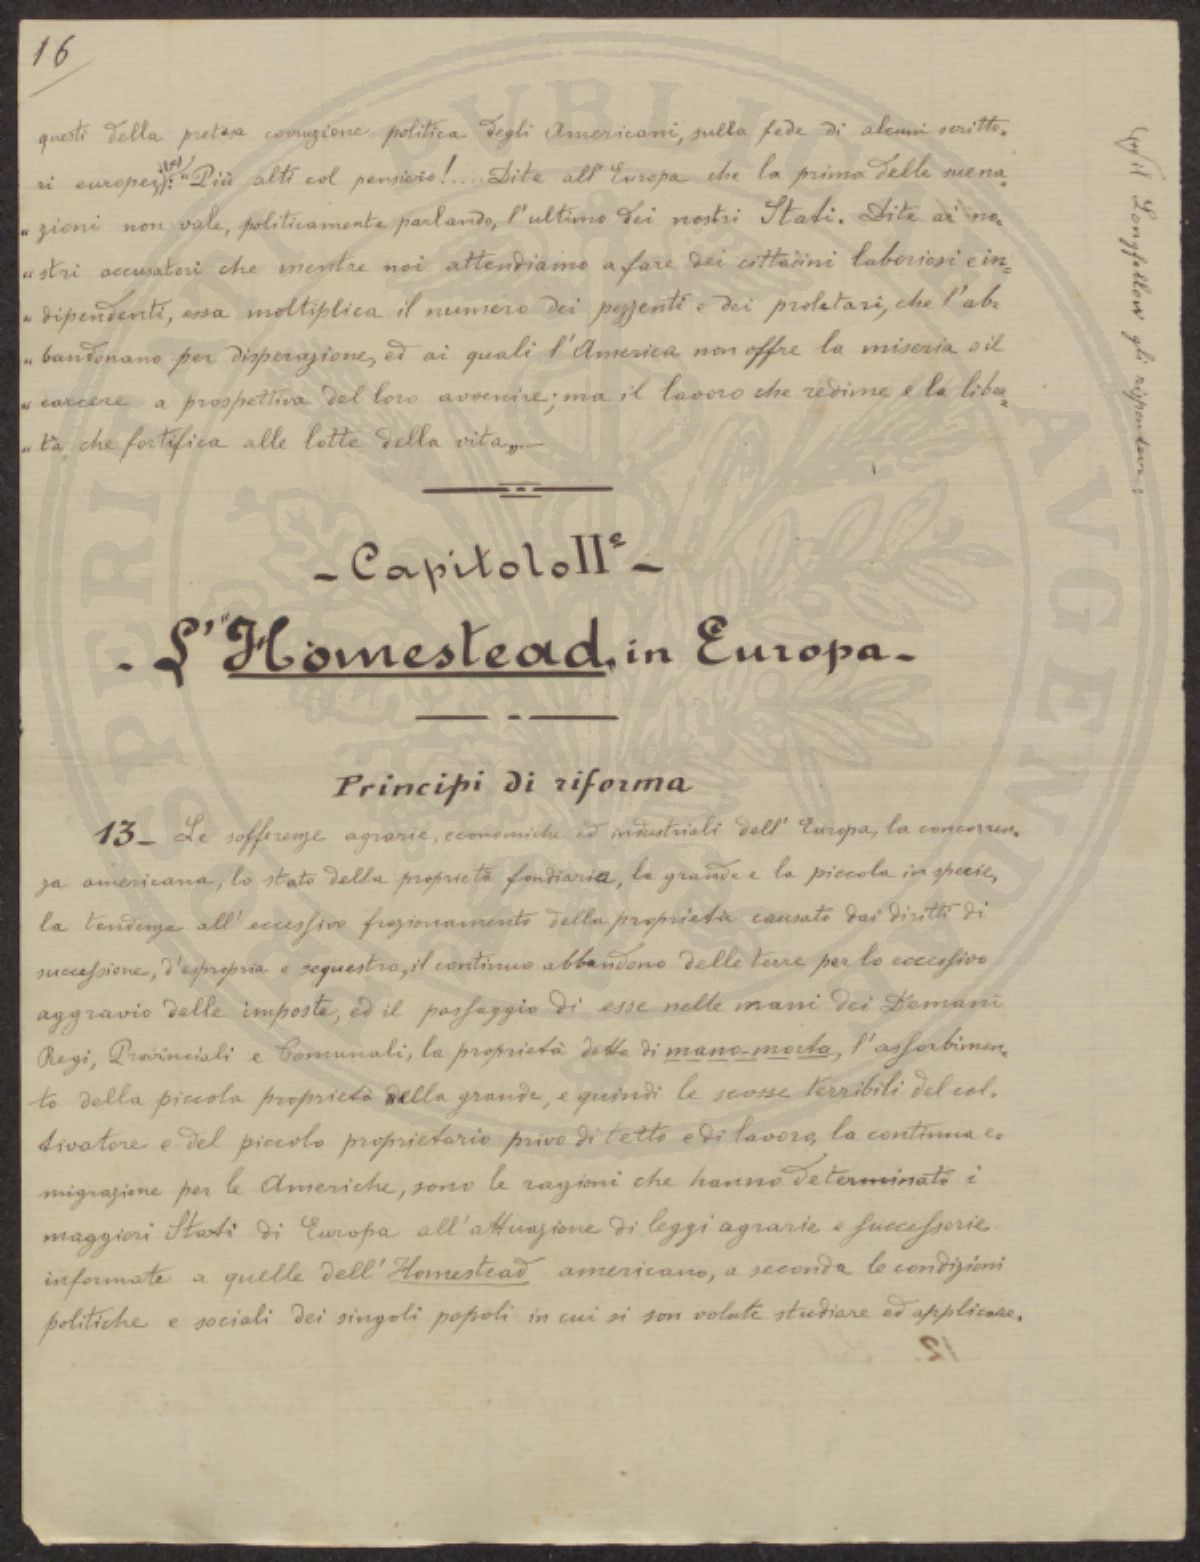 16
questi della pretesa corruzione politica degli Americani, sulla fede di alcuni scritto-
ri europei: "Più alti col pensiero!.... Dite all'Europa che la prima delle sue na-
" zioni non vale, politicamente parlando, l'ultimo dei nostri Stati. Dite ai no-
" stri accusatori che mentre noi attendiamo a fare dei cittadini laboriosi e in-
" dipendenti, essa moltiplica il numero dei pezzenti e dei proletari, che l'ab-
" bandonano per disperazione, ed ai quali l'America non offre la miseria o il
" carcere a prospettiva del loro avvenire; ma il lavoro che redime e la liber-
" tà, che fortifica alle lotte della vita„—
(x) il Longfellow gli rispondeva:
- Capitolo IIº -
- L'"Homestead„ in Europa -
Principi di riforma
13- Le sofferenze agrarie, economiche ed industriali dell'Europa, la concorren-
za americana, lo stato della proprietà fondiaria, la grande e la piccola in specie,
la tendenza all'eccessivo frazionamento della proprietà causato dai diritti di
successione, d'espropria e sequestro, il continuo abbandono delle terre per lo eccessivo
aggravio delle imposte, ed il passaggio di esse nelle mani dei Demani
Regi, Provinciali e Comunali, la proprietà detta di mano-morta, l'assorbimen-
to della piccola proprietà della grande, e quindi le scosse terribili del col-
tivatore e del piccolo proprietario privo di tetto e di lavoro, la continua e-
migrazione per le Americhe, sono le ragioni che hanno determinato i
maggiori Stati di Europa all'attuazione di leggi agrarie e successorie
informate a quelle dell'Homestead americano, a seconda le condizioni
politiche e sociali dei singoli popoli in cui si son volute studiare ed applicare.
12.